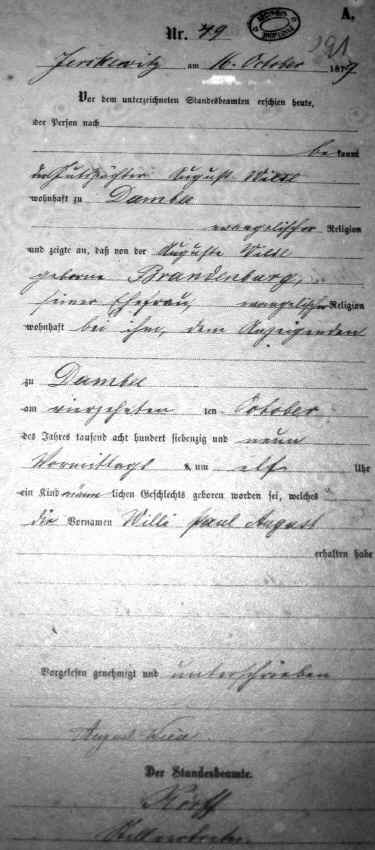 A.
Nr. 49
am 16. October 1879
Vor dem unterzeichneten Standesbeamten erschien heute,
der Person nach
bekannt
der August
wohnhaft zu Damba
evangelischer Religion
und zeigte an, daß von der Auguste
geborne Brandenburg,
seiner Ehefrau, evangelischer Religion
wohnhaft bei ihm, dem Anzeigenden
zu Damba
am vierzehnten ten October
des Jahres tausend acht hundert siebenzig und neun
Vormittags um elf Uhr
ein Kind männlichen Geschlechts geboren worden sei, welches
die Vornamen Willi Paul August
erhalten habe
Vorgelesen genehmigt und unterschrieben
August
Der Standesbeamte.